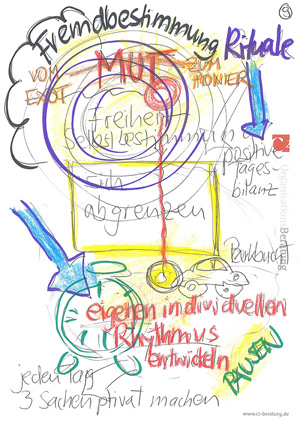 9
Fremdbestimmung
Rituale
VOM EXOT
MUT
ZUM PIONIER
Freiheit
Selbstbestimmung
sich
abgrenzen
positive
Tages-
bilanz
CZ
OrganisationsBeratung
eigenen individuellen
Rhythmus
entwickeln
PAUSEN
jeden Tag
3 Sachen privat machen
www.cz-beratung.de